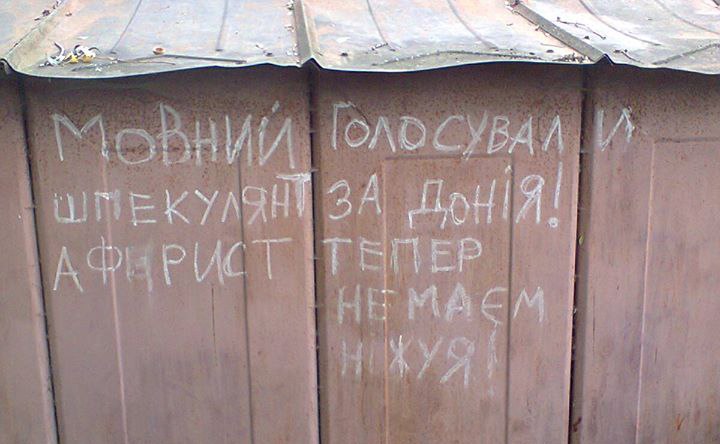 МОВНИЙ
ШПЕКУЛЯНТ
АФЕРИСТ
ГОЛОСУВАЛИ
ЗА ДОНІЯ!
ТЕПЕР
НЕ МАЄМ
НІЖУЯ!